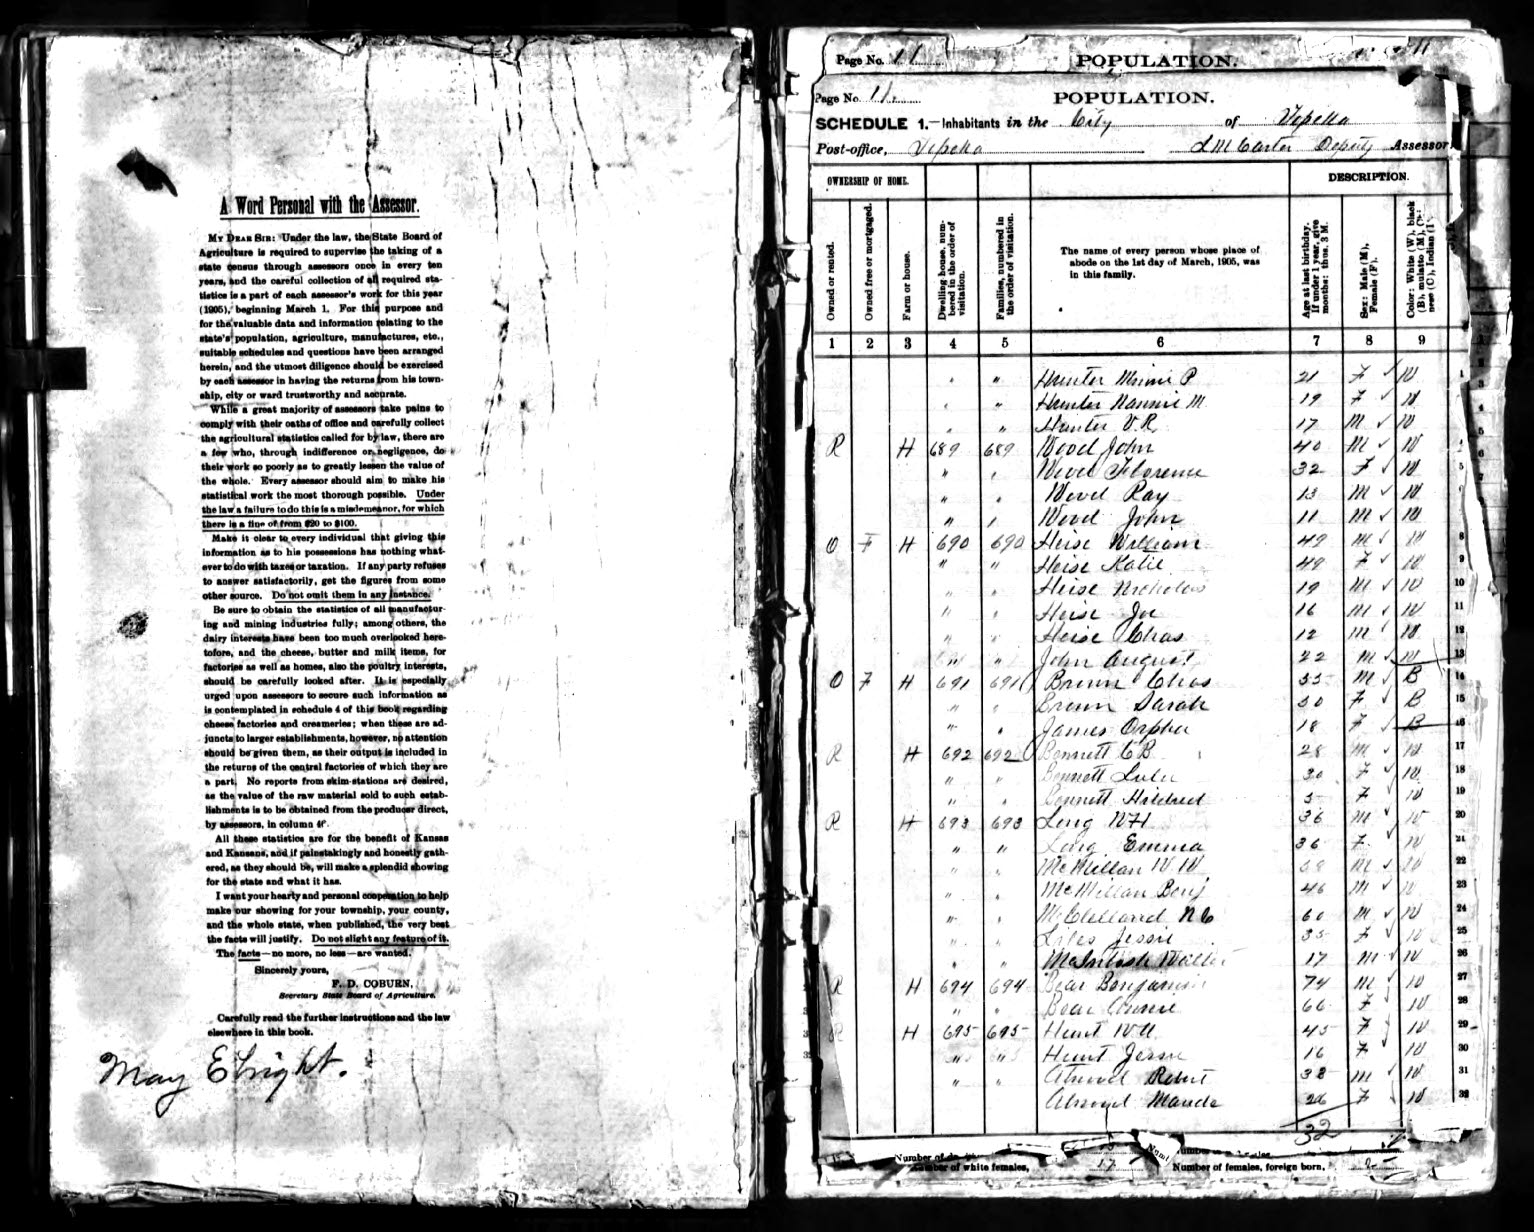 A Word Personal with the Assessor.
MY DEAR SIR: Under the law, the State Board of
Agriculture is required to supervise the taking of a
state census through assessors once in every ten
years, and the careful collection of all required sta-
tistics is a part of each assessor's work for this year
(1905), beginning March 1. For this purpose and
for the valuable data and information relating to the
state's population, agriculture, manufactures, etc.,
suitable schedules and questions have been arranged
herein, and the utmost diligence should be exercised
by each assessor in having the returns from his town-
ship, city or ward trustworthy and accurate.
While a great majority of assessors take pains to
comply with their oaths of office and carefully collect
the agricultural statistics called for by law, there are
a few who, through indifference or negligence, do
their work so poorly as to greatly lessen the value of
the whole. Every assessor should aim to make his
statistical work the most thorough possible. Under
the law a failure to do this is a misdemeanor, for which
there is a fine of from $20 to $100.
Make it clear to every individual that giving this
information as to his possessions has nothing what-
ever to do with taxes or taxation. If any party refuses
to answer satisfactorily, get the figures from some
other source. Do not omit them in any instance.
Be sure to obtain the statistics of all manufactur-
ing and mining industries fully; among others, the
dairy interests have been too much overlooked here-
tofore, and the cheese, butter and milk items, for
factories as well as homes, also the poultry interests,
should be carefully looked after. It is especially
urged upon assessors to secure such information as
is contemplated in schedule 4 of this book regarding
cheese factories and creameries; when these are ad-
juncts to larger establishments, however, no attention
should be given them, as their output is included in
the returns of the central factories of which they are
a part. No reports from skim-stations are desired,
as the value of the raw material sold to such estab-
lishments is to be obtained from the producer direct,
by assessors, in column 4
All these statistics are for the benefit of Kansas
and Kansans, and if painstakingly and honestly gath-
ered, as they should be, will make a splendid showing
for the state and what it has.
I want your hearty and personal cooperation to help
make our showing for your township, your county,
and the whole state, when published, the very best
the facts will justify. Do not slight any feature of it.
The facts—no more, no less—are wanted.
Sincerely yours,
F. D. COBURN,
Secretary State Board of Agriculture.
Carefully read the further instructions and the law
elsewhere in this book.
May Ebright.
11
Page No. 11 POPULATION.
Page No. 11. POPULATION.
SCHEDULE 1.—Inhabitants in the City of Topeka
Post-office, Topeka L M Carter Deputy Assessor
OWNERSHIP OF HOME. DESCRIPTION.
Owned or rented.
Owned free or mortgaged.
Farm or house.
Dwelling house, num-
bered in the order of
visitation.
Families, numbered in
the order of visitation.
The name of every person whose place of
abode on the 1st day of March, 1905, was
in this family.
Age at last birthday.
If under 1 year, give
months: thus, 3 M.
Sex: Male (M),
Female (F).
Color: White (W), black
(B), mulatto (M), Chi-
nese (C), Indian (I).
1 2 3 4 5 6 7 8 9
" " Hunter Minnie P 21 F W 1
" " Hunter Nannie M 19 F W
" " Hunter V.R. 17 M W
R H 689 689 Wood John 40 M W
" " Wood Florence 32 F W 5
" " Wood Ray 13 M W
" " Wood John 11 M W
O F H 690 690 Heise William 49 M W 8
" " Heise Katie 49 F W 9
" " Heise Nicholas 19 M W 10
" " Heise Joe 16 M W 11
" " Heise Chas 12 M W 12
" " John August 22 M W 13
O F H 691 691 Brown Chas 55 M B 14
" " Brown Sarah 50 F B 15
" " James Orpha 18 F B 16
R H 692 692 Bennett C B 28 M W 17
" " Bennett Lulu 30 F W 18
" " Bennett Hildred 5 F W 19
R H 693 693 Long W H 36 M W 20
" " Long Emma 36 F W 21
" " McMillan W W M W 22
" " McMillan Benj 46 M W 23
" " McClelland N C 60 M W 24
" " Liles Jessie 35 F W 25
" " McIntosh Walter 17 M W 26
R H 694 694 Bear Benjamin 74 M W 27
" " Bear 66 F W 28
R H 695 695 Hunt W A 45 F W 29
" " Hunt Jessie 16 F W 30
" " Atwood Robert 32 M W 31
Atwood Maude 26 F W 32
32
Number of white females, 17
Number of females, foreign born,